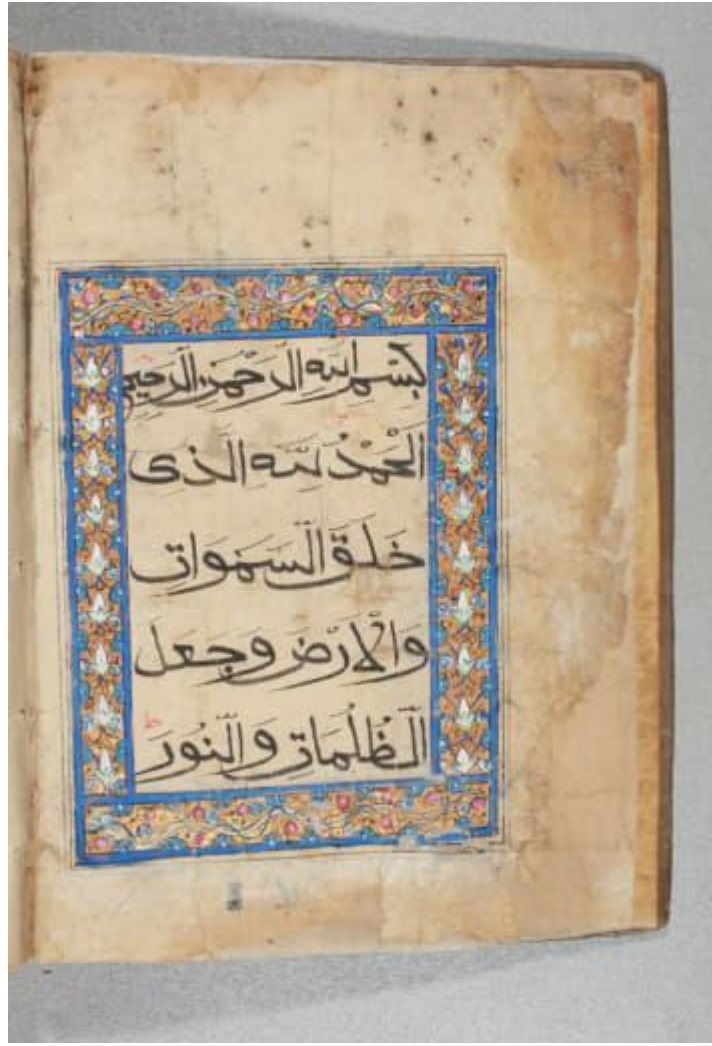 بِسْمِ اللهِ الرَّحْمٰنِ الرَّحِيمِ
اَلْحَمْدُ لِلّٰهِ الَّذِى
خَلَقَ السَّمَوَاتِ
وَالْاَرْضَ وَجَعَلَ
الظُّلُمَاتِ وَالنُّورَ
ط